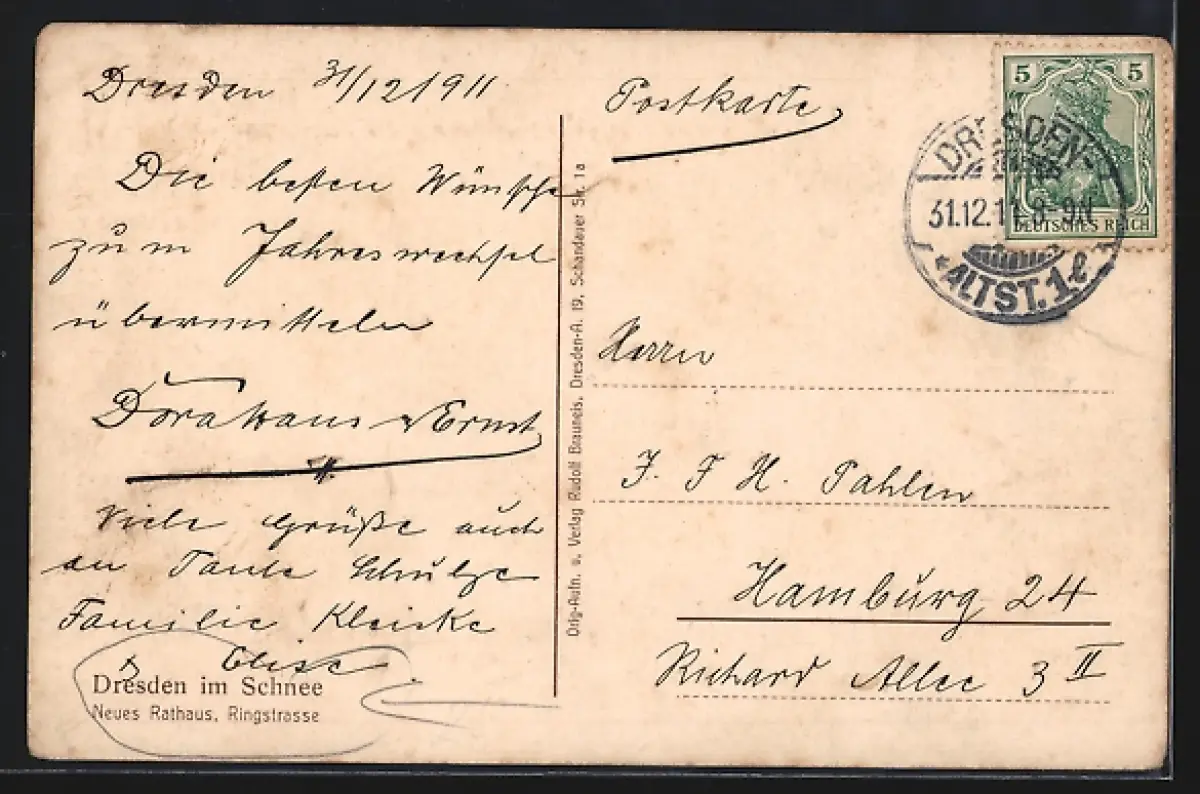 Dresden 31/12/1911
Die besten Wünsche
zum Jahreswechsel
übermitteln
Dora Hans u Ernst
Viele Grüße auch
an Tante Schulze
Familie
& Elise
Dresden im Schnee
Neues Rathaus, Ringstrasse
Orig-Aufn. u. Verlag Rudolf Brauneis, Dresden-A. 19, Schandauer Str. 1a
Postkarte
5 5
DEUTSCHES REICH
DRESDEN-
31.12.11 8-9N
*ALTST. 1 l
Herrn
J. F H. Pahlen
Hamburg 24
Richard Allee 3 II